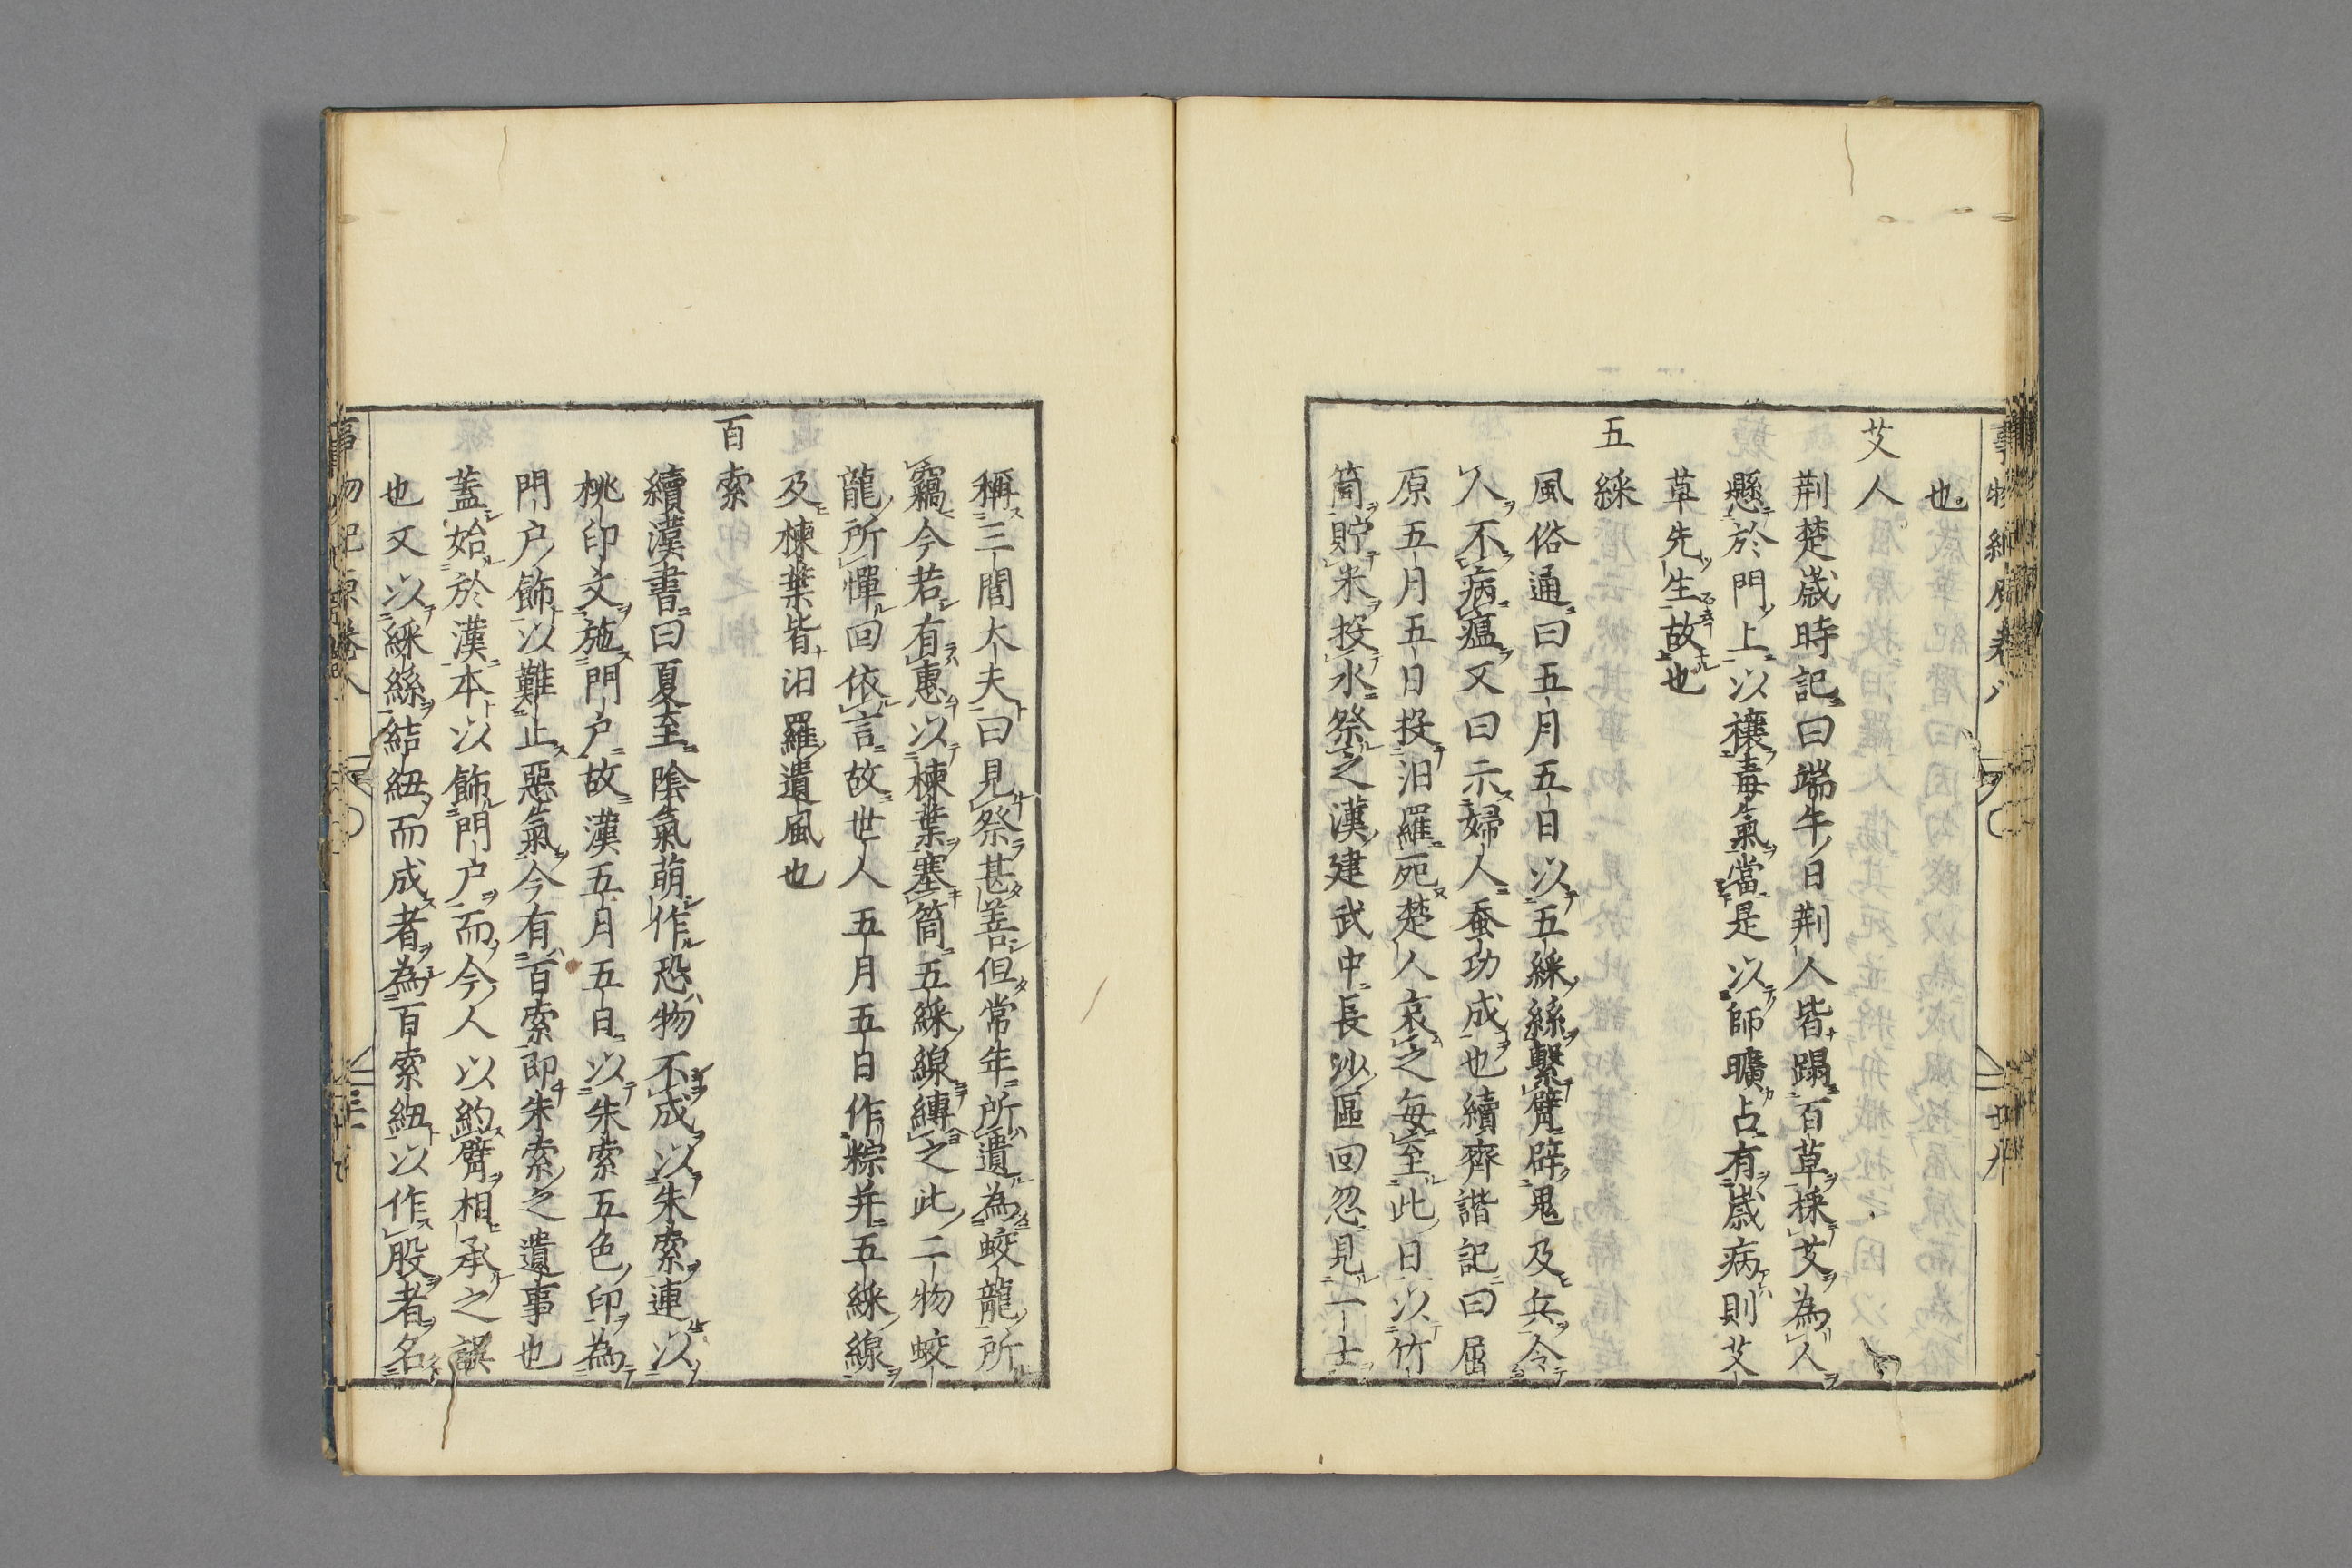 也
艾人
荆楚歳時記曰端午日荆人皆蹋百草採艾為人
懸於門上以禳毒氣當是以師曠占有歳病則艾
草先生故也
五綵
風俗通曰五月五日以五綵絲繫臂辟鬼及兵令
人不病瘟又曰示婦人蚕功成也續齊諧記曰屈
原五月五日投汨羅死楚人哀之毎至此日以竹
筒貯米投水祭之漢建武中長沙區回忽見一士
稱三閭大夫曰見祭甚善但常年所遺為蛟龍所
竊今若有惠以楝葉塞筒五綵線縛之此二物蛟
龍所憚回依言故世人五月五日作粽并五綵線
及楝葉皆汨羅遺風也
百索
續漢書曰夏至陰氣萌作恐物不成以朱索連以
桃印文施門户故漢五月五日以朱索五色印為
門户飾以難止惡氣今有百索即朱索之遺事也
蓋始於漢本以飾門户而今人以約臂相承之誤
也又以綵絲結紐而成者為百索紐以作股者名